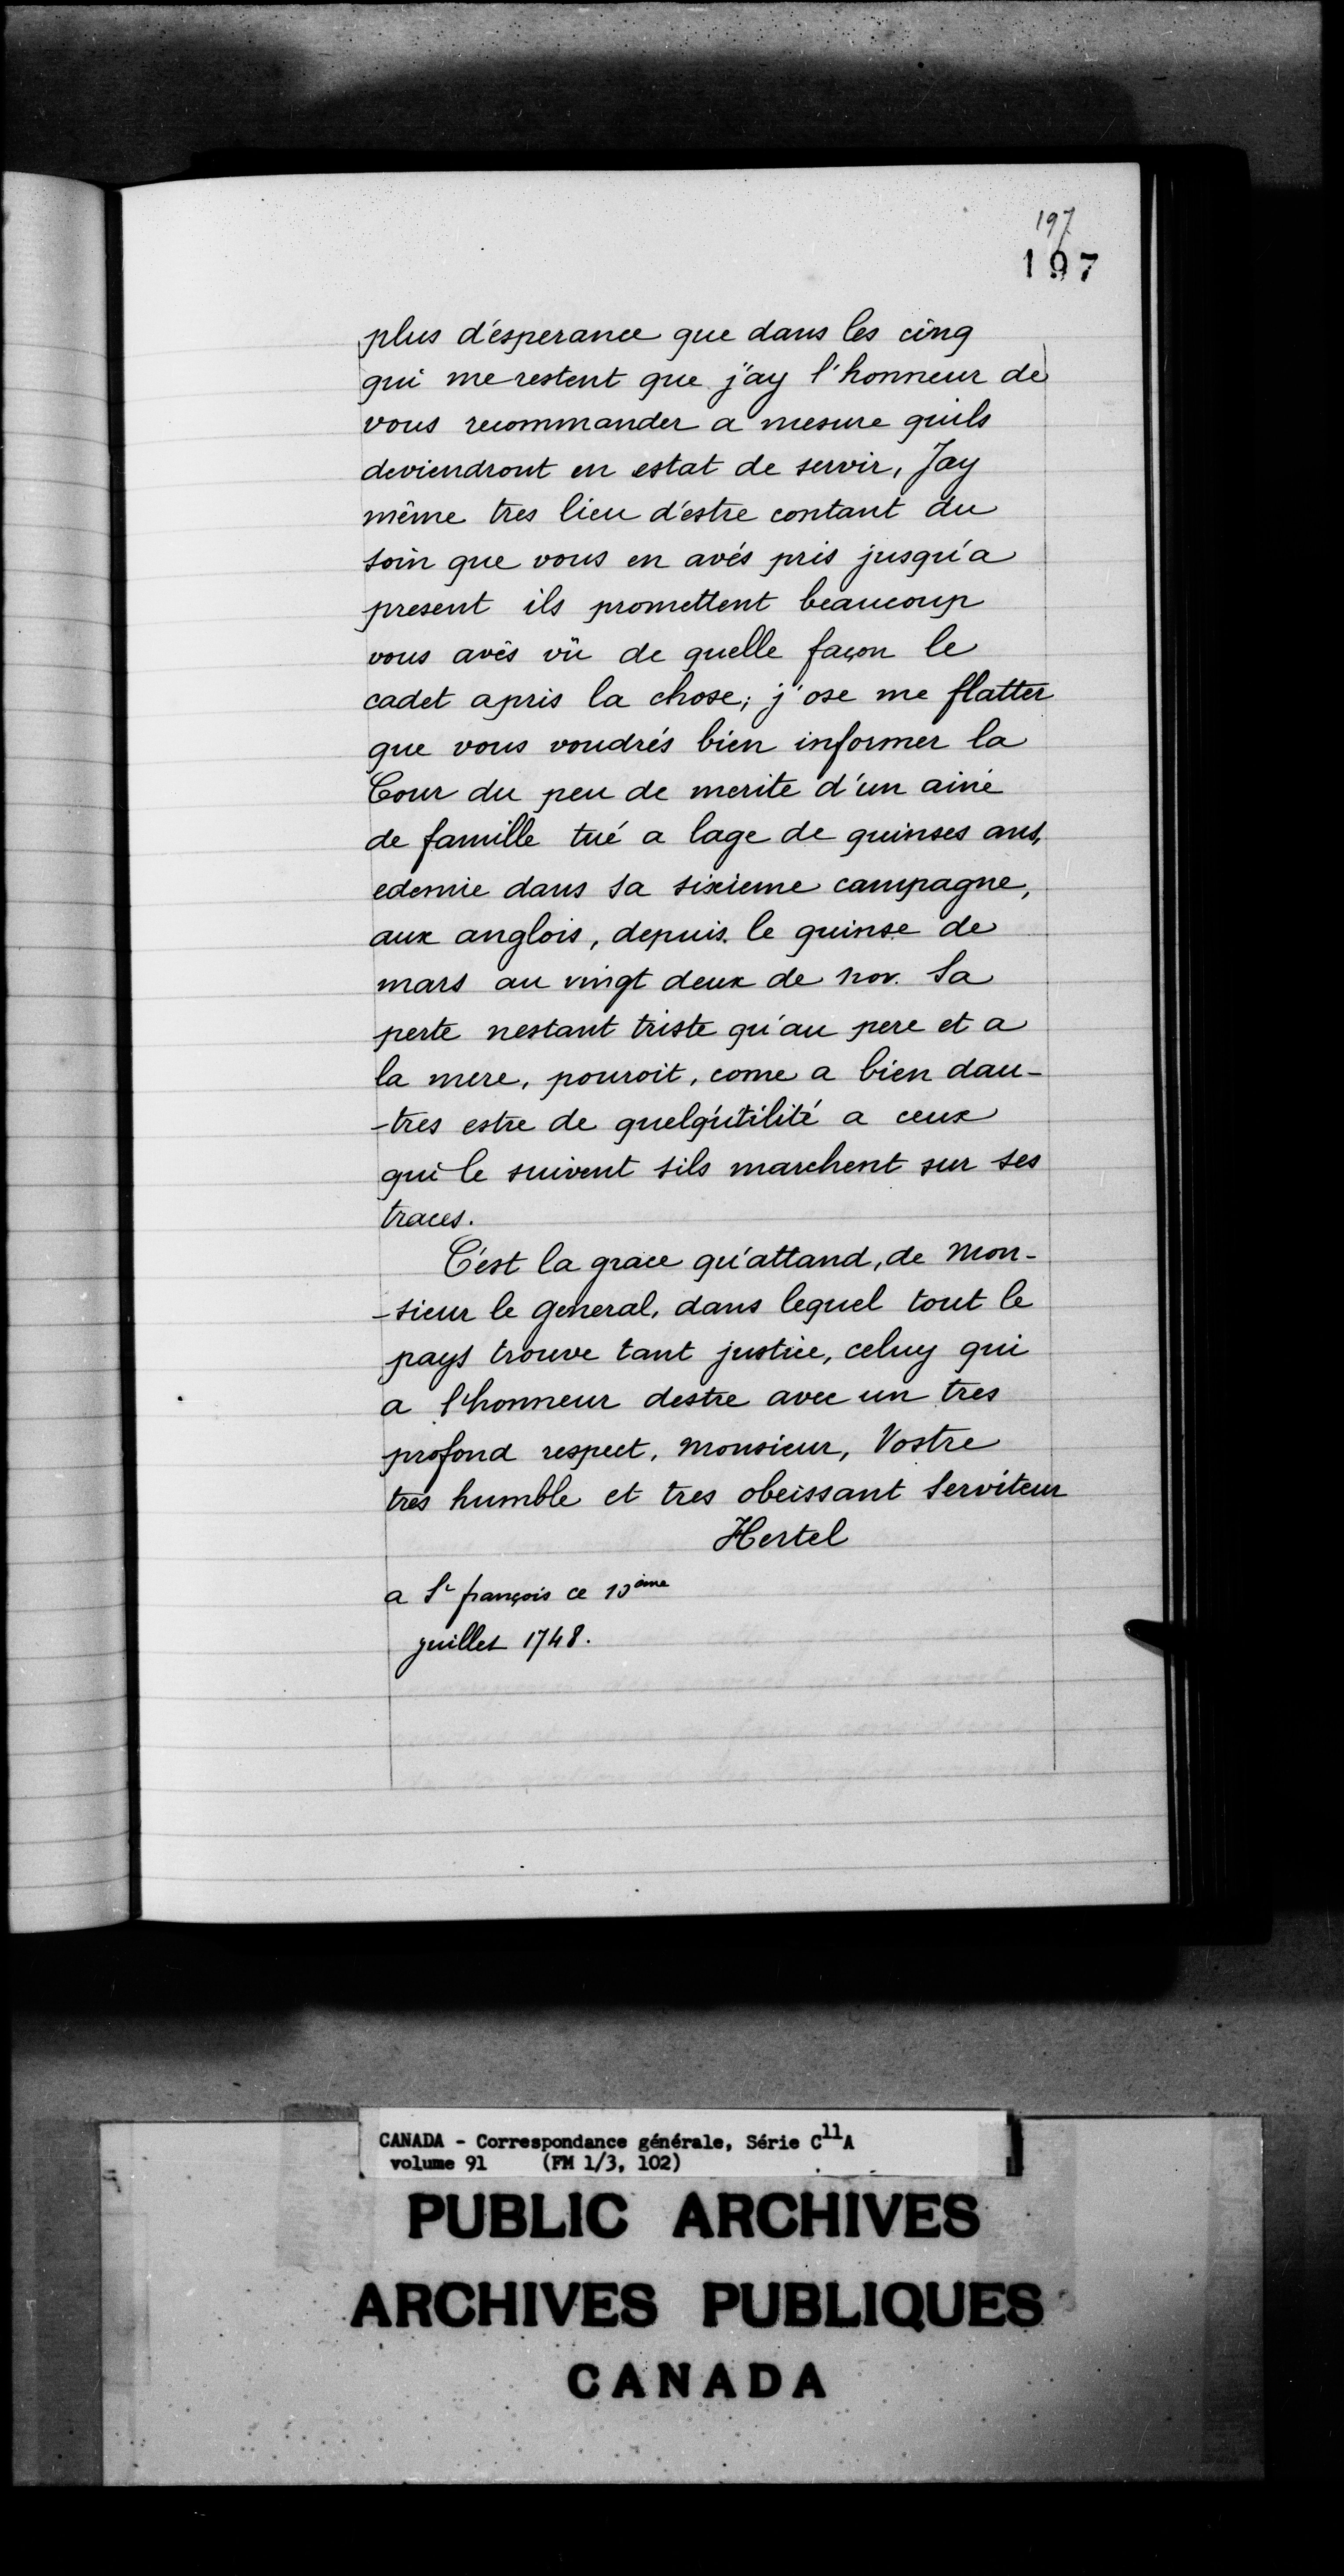 197
197
plus d'esperance que dans les cinq
qui me restent que j'ay l'honneur de
vous recommander a mesure quils
deviendront en estat de servir, Jay
même tres lieu d'estre contant du
soin que vous en avés pris jusqu'a
present ils promettent beaucoup
vous avês vû de quelle façon le
cadet apris la chose; j'ose me flatter
que vous voudrés bien informer la
Cour du peu de merite d'un ainé
de famille tué a lage de quinses ans,
edemie dans sa sixieme campagne,
aux anglois, depuis le quinse de
mars au vingt deux de nov. Sa
perte nestant triste qu'au pere et a
la mere, pouroit, come a bien dau-
-tres estre de quelqu'utilité a ceux
qui le suivent sils marchent sur ses
traces.
C'est la grace qu'attand, de Mon-
-sieur le general, dans lequel tout le
pays trouve tant justice, celuy qui
a l'honneur destre avec un tres
profond respect, Monsieur, Vostre
tres humble et tres obeissant Serviteur
Hertel
a St françois ce 10ème
juillet 1748.
CANADA - Correspondance générale, Série C11A
volume 91 (FM 1/3, 102)
PUBLIC ARCHIVES
ARCHIVES PUBLIQUES
CANADA